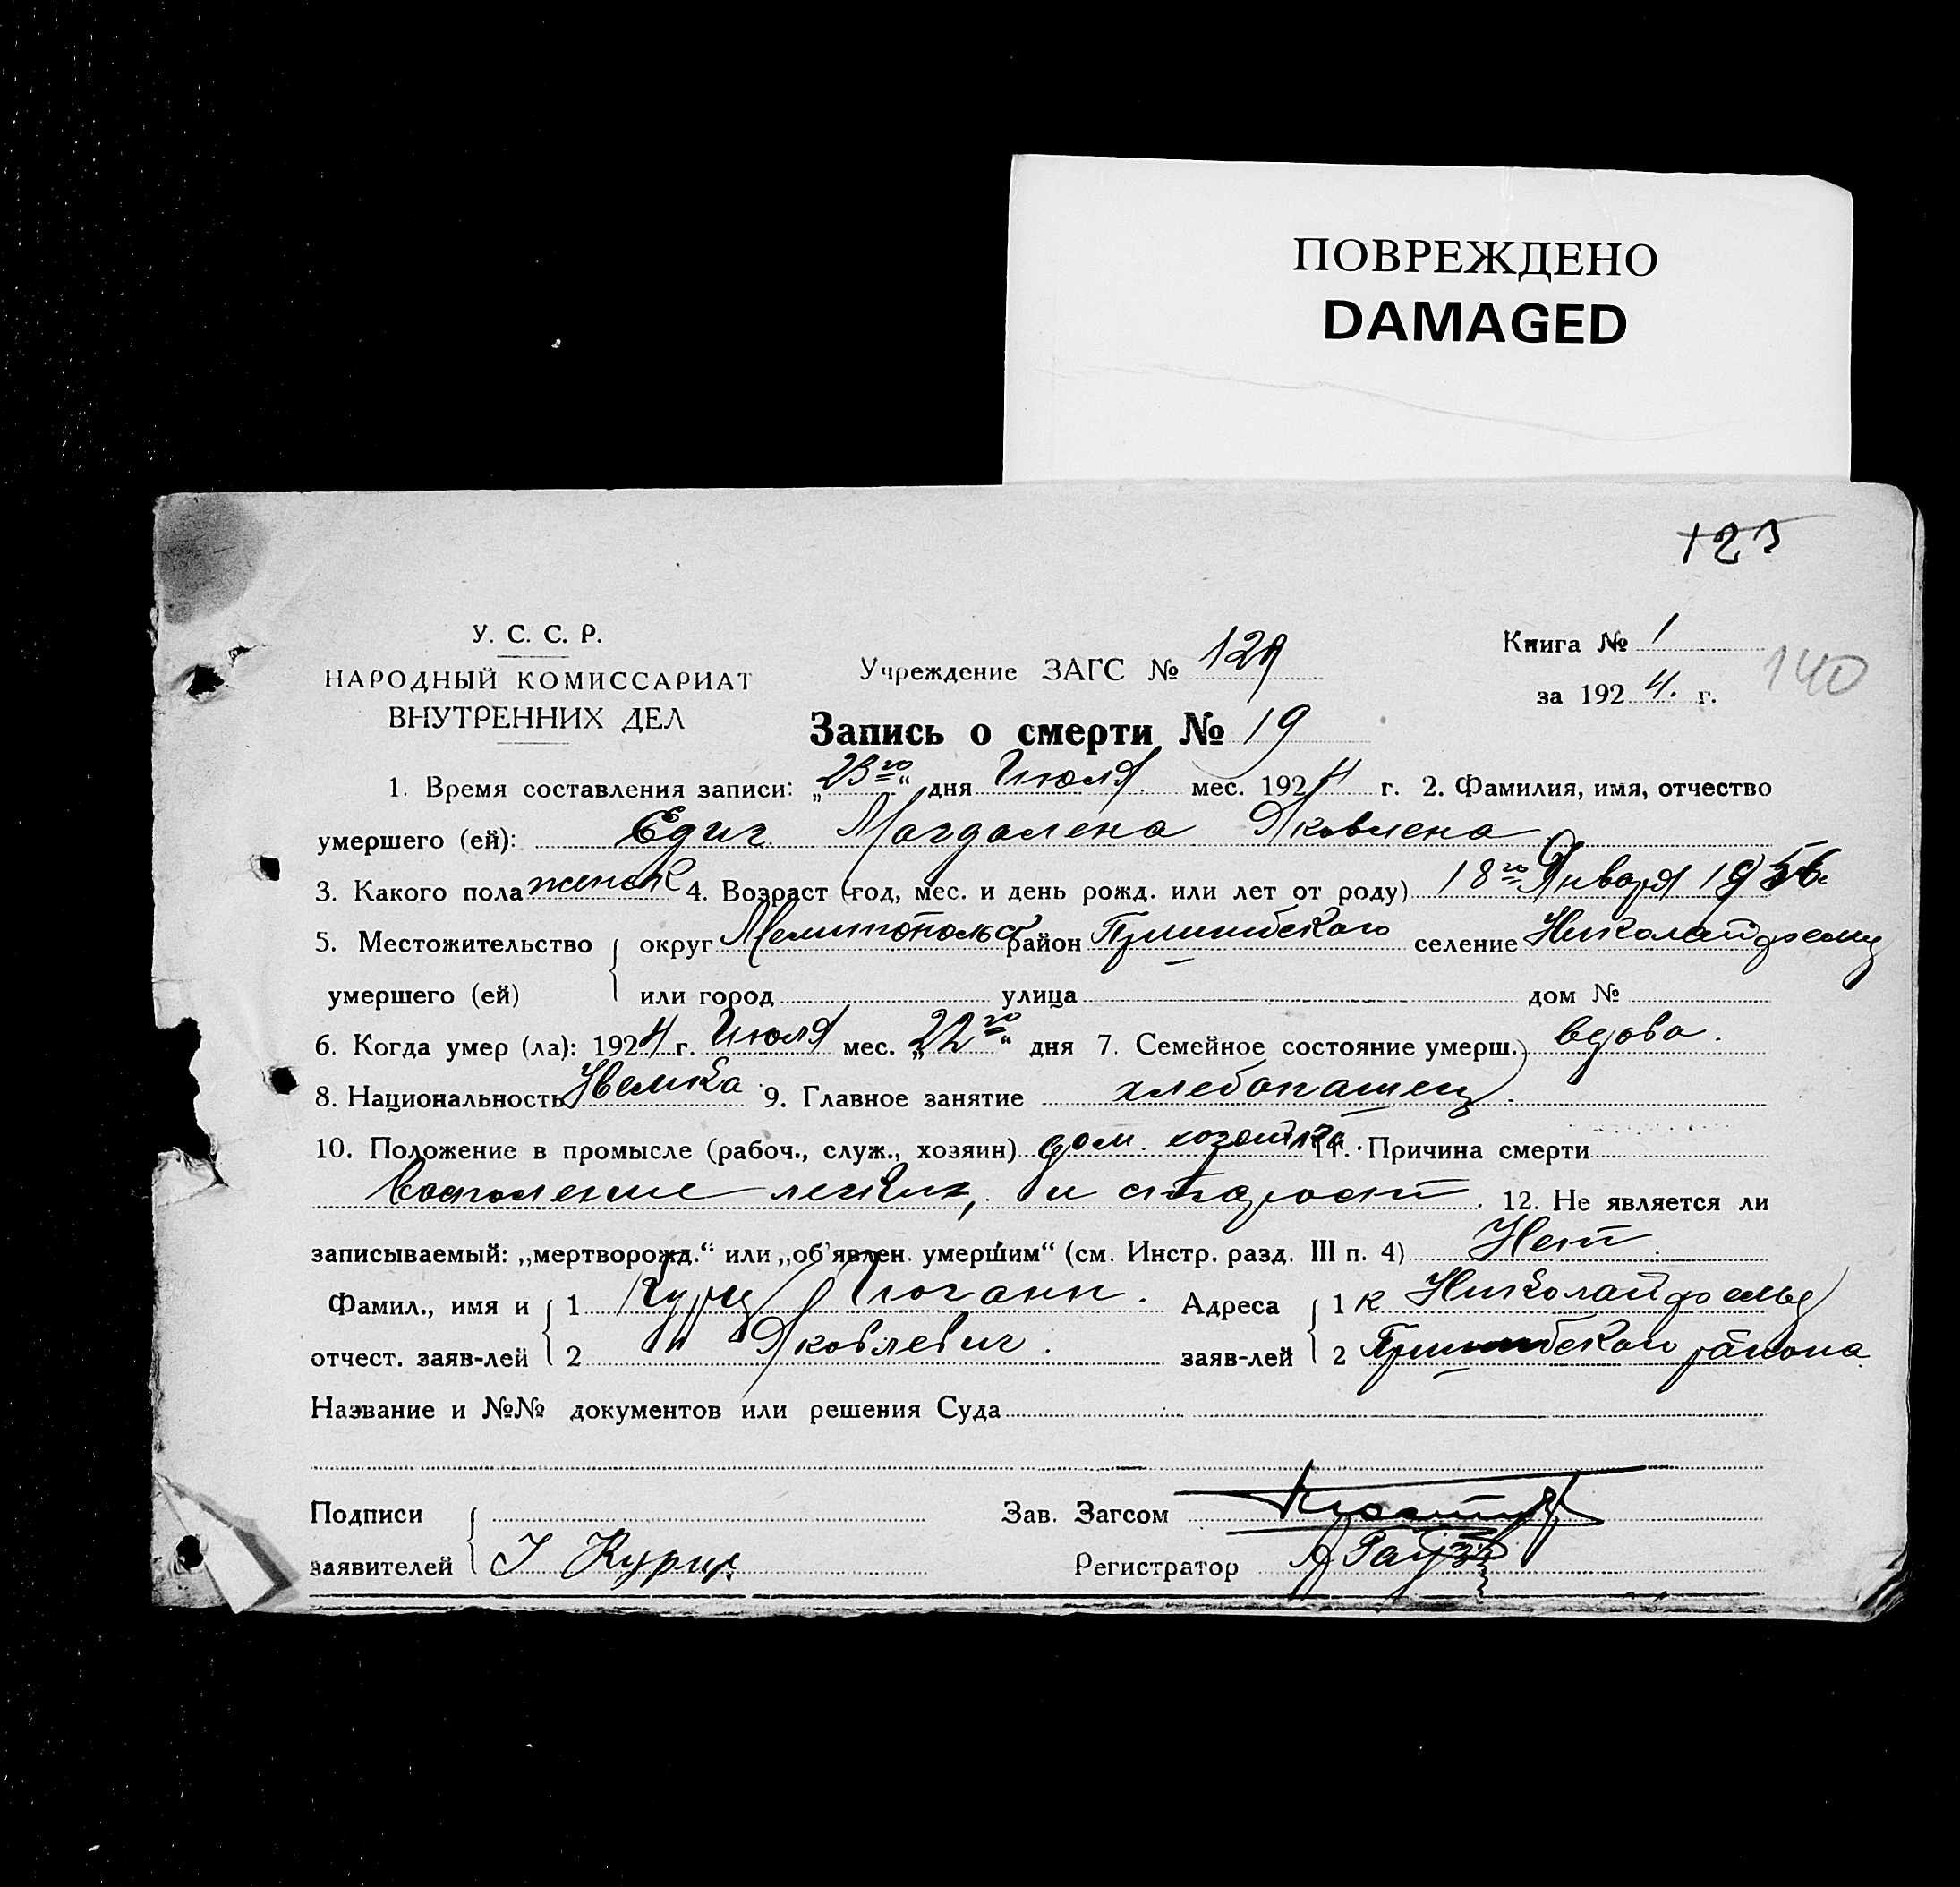 ПОВРЕЖДЕНО
DAMAGED
У. С. С. Р.
НАРОДНЫЙ КОМИССАРИАТ
ВНУТРЕННИХ ДЕЛ
Учреждение ЗАГС №
Книга № 1
за 1924 г.
140
Запись о смерти № 19
1. Время составления записи: „23го“ дня Июля мес. 1924 г. 2. Фамилия, имя, отчество
умершего (ей): Едиг Магдалена Яковлена
3. Какого пола женск 4. Возраст (год, мес. и день рожд. или лет от роду) 18го Января
5. Местожительство округ Мелитопольск район Пришибского селение Николайфельд
умершего (ей) или город улица дом №
6. Когда умер (ла): 1924 г. Июля мес. „22го“ дня 7. Семейное состояние умерш. вдова.
8. Национальность Немка 9. Главное занятие хлебопашец.
10. Положение в промысле (рабоч., служ., хозяин) дом. хозяйка 11. Причина смерти
Восполение легких, и старост. 12. Не является ли
записываемый: „мертворожд.“ или „об'явлен. умершим“ (см. Инстр. разд. III п. 4) Нет.
Фамил., имя и 1 Курц Иоганн. Адреса 1 к Николайфельд
отчест. заяв-лей 2 Яковлевич. заяв-лей 2 Пришибского района
Название и №№ документов или решения Суда
Подписи Зав. Загсом
заявителей И Курц. Регистратор